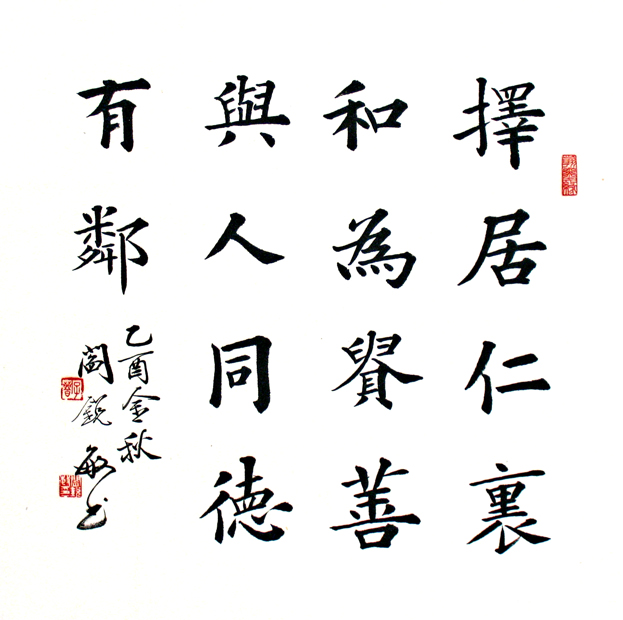 擇居仁裏
和為貴善
與人同德
有鄰
乙酉金秋
閻鋭敏书